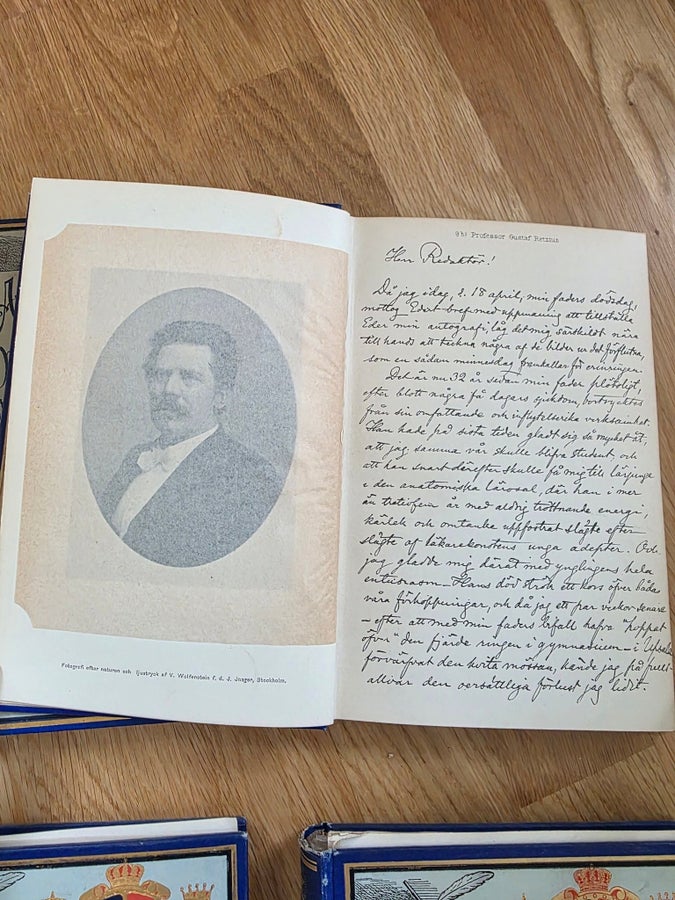 Fotografi efter naturen och ljustryck af V. Wolfenstein f. d. J. Jaeger, Stockholm.
93) Professor Gustaf Retzius
Herr Redaktör!
Då jag i dag, d. 18 april, min faders dödsdag,
mottog Edert bref med uppmaning att tillställa
Eder min autografi, låg det mig särskildt nära
till hands att teckna några af de bilder ur det förflutna,
som en sådan minnesdag framkallar för erinringen.
Det är nu 32 år sedan min fader plötsligt,
efter blott några få dagars sjukdom, bortrycktes
från sin omfattande och inflytelserika verksamhet.
Han hade på sista tiden gladt sig så mycket åt,
att jag samma vår skulle blifva student, och
att han snart derefter skulle få mig till lärjunge
i den anatomiska lärosal, der han i mer
än trettiofem år med aldrig tröttnande energi,
kärlek och omtanke uppfostrat slägte efter
slägte af läkarekonstens unga adepter. Och
jag gladde mig deråt med ynglingens hela
entusiasm – Hans död strök ett kors öfver bådas
våra förhoppningar, och då jag ett par veckor senare
– efter att med min faders bifall hafva "hoppat
öfver" den fjärde ringen i gymnasium – i Upsala
förvärfvat den hvita mössan, kände jag på fullt
allvar den oersättliga förlust jag lidit.